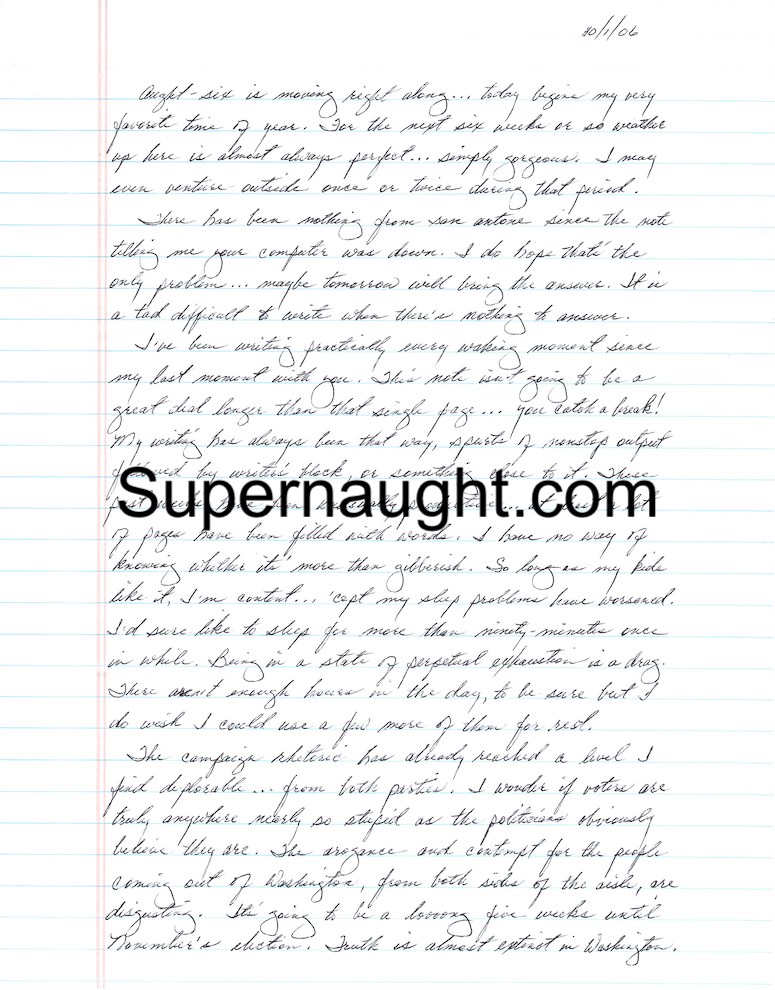 10/1/06
Aught-six is moving right along... today begins my very
favorite time of year. For the next six weeks or so weather
up here is almost always perfect... simply gorgeous. I may
even venture outside once or twice during that period.
There has been nothing from san antone since the note
telling me your computer was down. I do hope that's the
only problem... maybe tomorrow will bring the answer. It is
a tad difficult to write when there's nothing to answer.
I've been writing practically every waking moment since
my last moment with you. This note isn't going to be a
great deal longer than that single page... you catch a break!
My writing has always been that way, spurts of nonstop output
followed by writer's block, or something close to it. These
Supernaught.com
past weeks have been unusually productive... at least a lot
of pages have been filled with words. I have no way of
knowing whether it's more than gibberish. So long as my kids
like it, I'm content... 'cept my sleep problems have worsened.
I'd sure like to sleep for more than ninety-minutes once
in while. Being in a state of perpetual exhaustion is a drag.
There aren't enough hours in the day, to be sure but I
do wish I could use a few more of them for rest.
The campaign rhetoric has already reached a level I
find deplorable... from both parties. I wonder if voters are
truly anywhere nearly so stupid as the politicians obviously
believe they are. The arogance and contempt for the people
coming out of Washington, from both sides of the aisle, are
disgusting. It's going to be a looooong five weeks until
November's election. Truth is almost extinct in Washington.